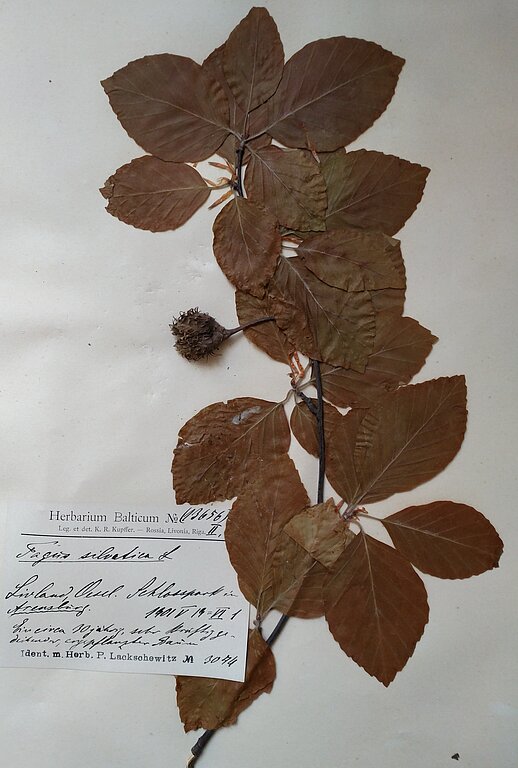 Herbarium Balticum № (13656)
Leg. et det. K. R. Kupffer. — Rossia, Livonia, Riga. II,
Fagus silvatica L
Livland, Oesel. Schlosspark in
Arensburg. 1901 V 19 - VI 1
Ein circa jähr., sehr kräftig ge-
angepflanzter Baum
Ident. m. Herb. P. Lackschewitz № 3074